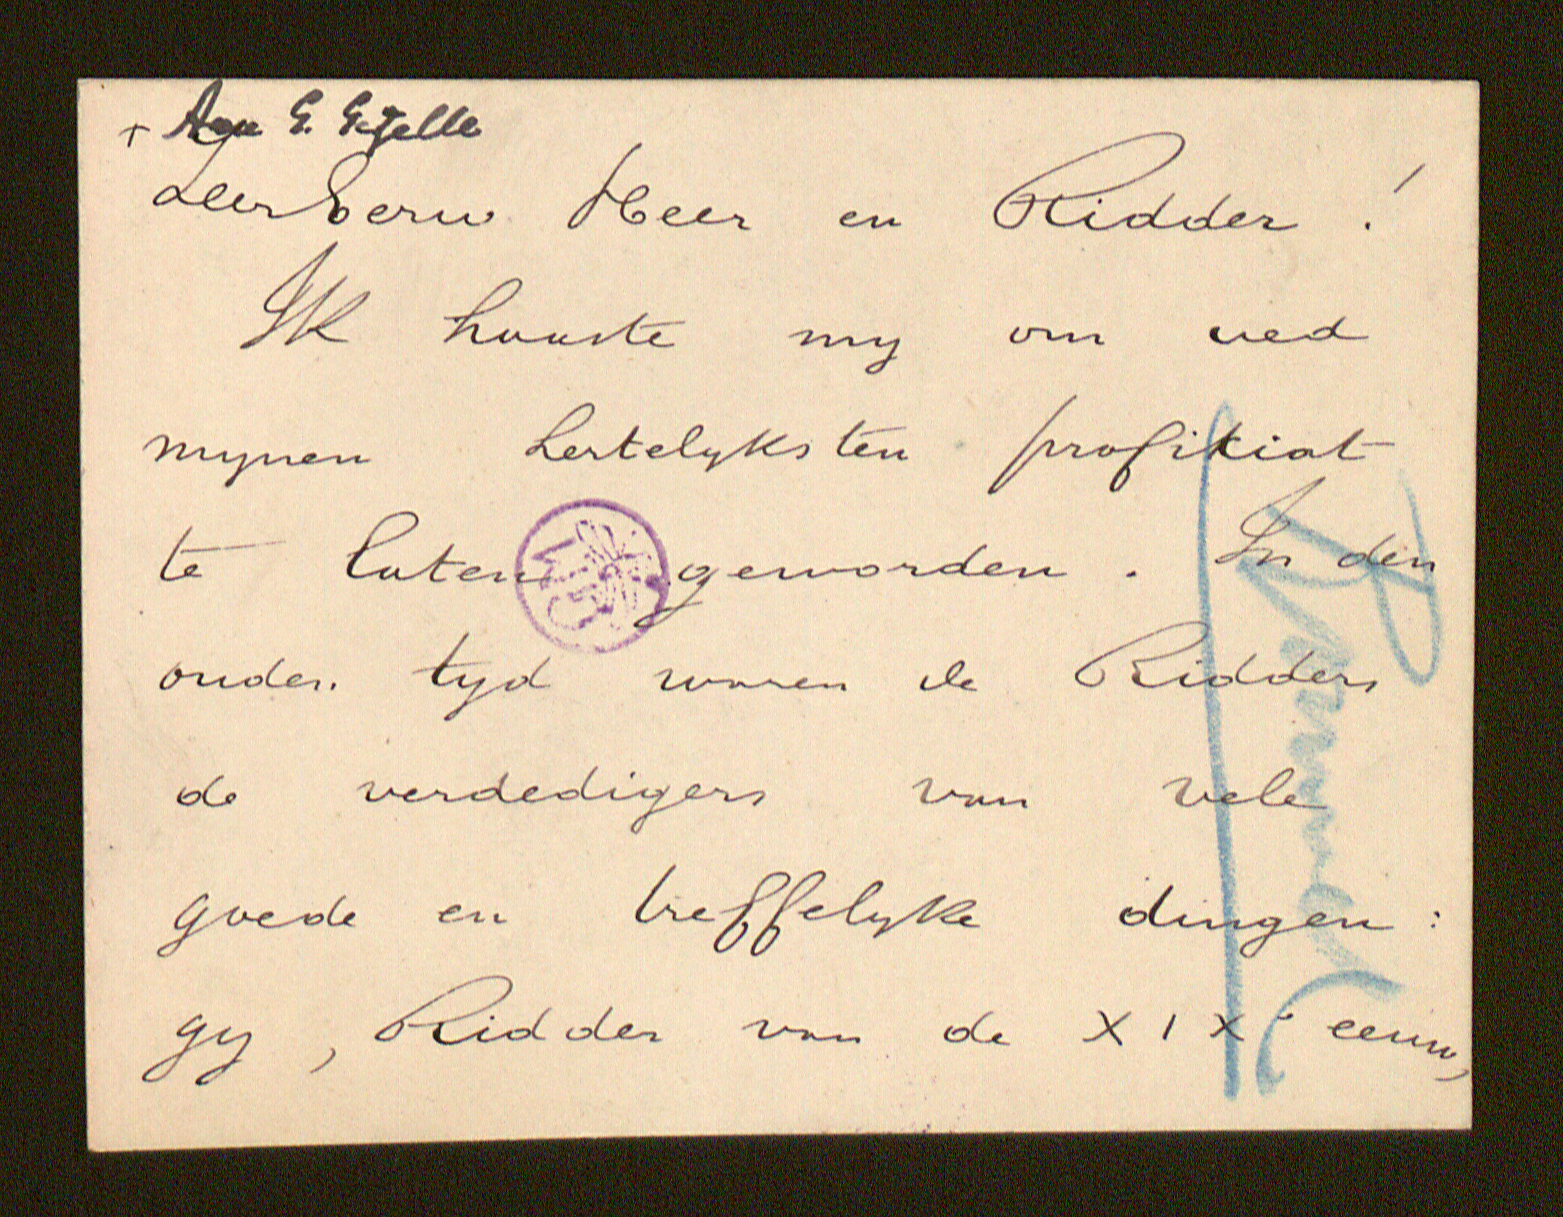 + Aan G. Gezelle
Zeer Eerw Heer en Ridder !
Ik haaste my om ued
mynen hertelyksten profikiat
te laten geworden. In den
ouden tyd waren de Ridders
de verdedigers van vele
goede en treffelyke dingen :
gy, Ridder van de XIXe eeuw,